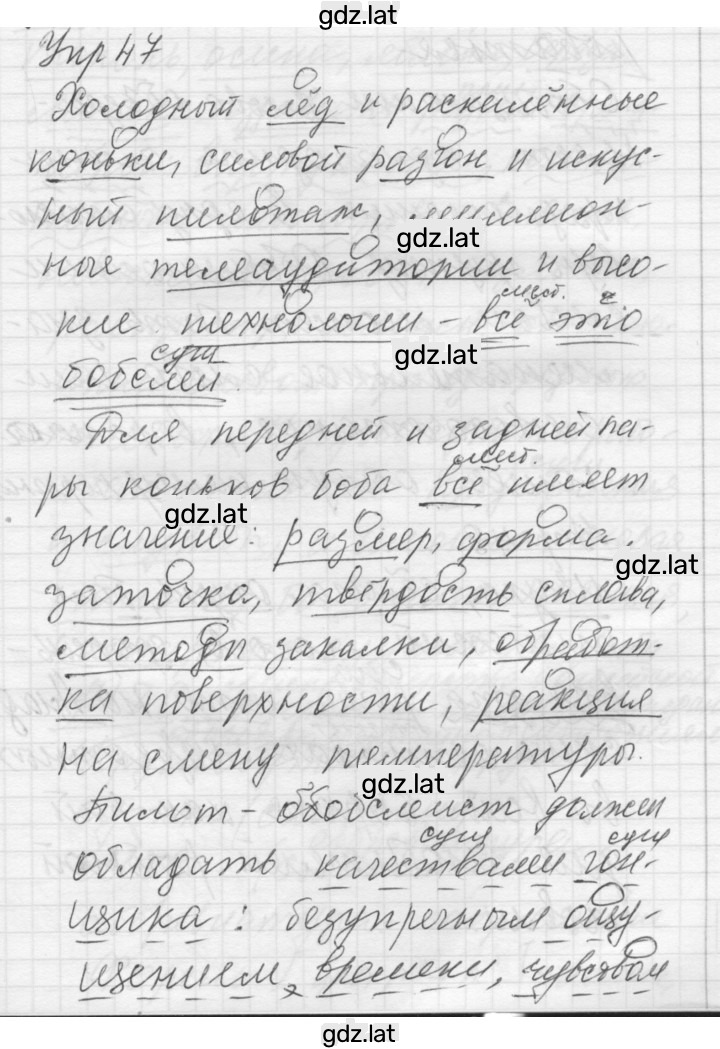 gdz.lat
Упр 47
Холодный лёд и раскалённые
коньки, силовой разгон и искус-
ный пилотаж, миллион-
gdz.lat
ные телеаудитории и высо-
мест.
кие технологии - всё это
gdz.lat
сущ
бобслей.
Для передней и задней па-
мест.
ры коньков боба всё имеет
gdz.lat
значение: размер, форма.
gdz.lat
заточка, твёрдость сплава,
методы закалки, обработ-
ка поверхности, реакция
на смену температуры.
gdz.lat
Пилот - бобслеист должен
сущ сущ
обладать качествами гон-
щика: безупречным ощу-
щением, времени, чувством
gdz.lat